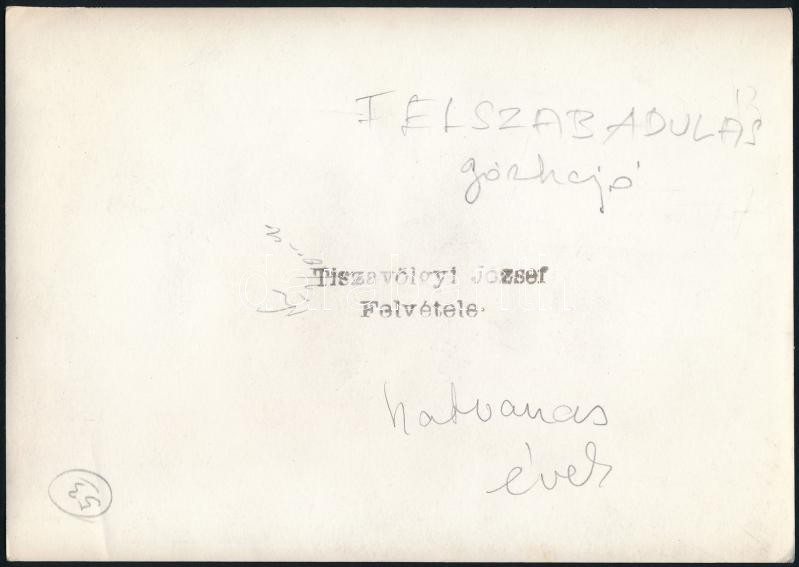 FELSZABADULÁS
gőzhajó
Tiszavölgyi József
Felvétele
hatvanas
évek
53